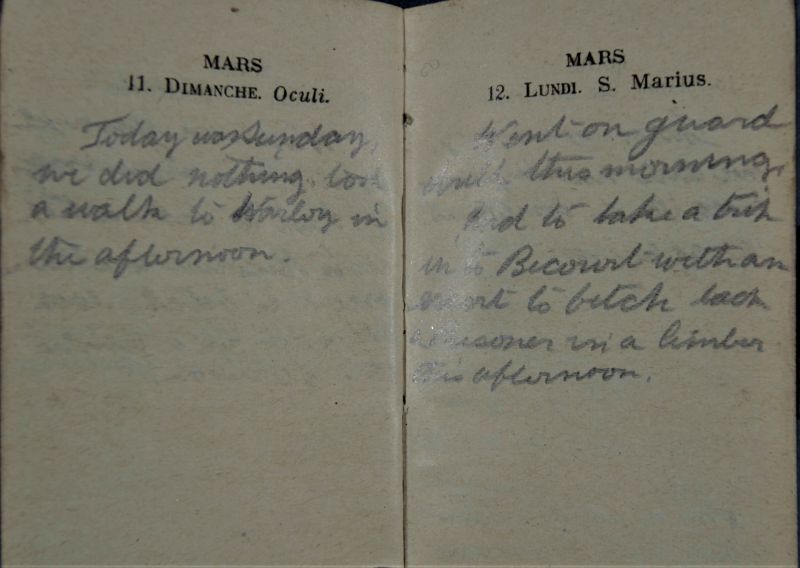 MARS
11. DIMANCHE. Oculi.
Today was Sunday,
we did nothing. took
a walk to Warloy in
the afternoon.
MARS
12. LUNDI. S. Marius.
Went on guard
this morning,
had to take a trip
in to Becourt with an
escort to fetch back
a prisoner in a limber
this afternoon.